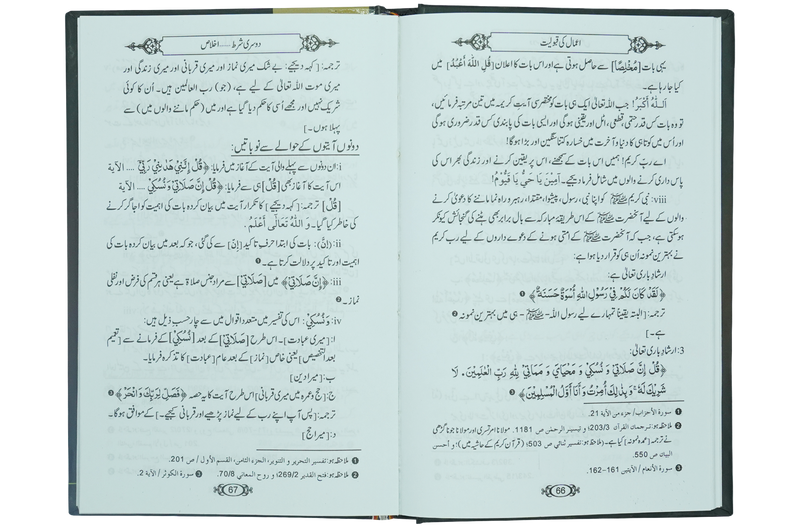 اعمال کی قبولیت
یہی بات [مُخْلِصًا] سے حاصل ہوتی ہے اور اس بات کا اعلان [قُلِ اللّٰهَ أَعْبُدُ] میں
کیا جا رہا ہے۔
اَللّٰهُ أَكْبَرُ! جب اللہ تعالیٰ ایک ہی بات کو مختصر سی آیتِ کریمہ میں تین مرتبہ فرمائیں،
تو وہ بات کس قدر حتمی، قطعی، اٹل اور یقینی ہوگی اور ایسی بات کی پابندی کس قدر ضروری ہوگی
اور اُس میں کوتاہی کا دنیا و آخرت میں خسارہ کتنا سنگین اور بڑا ہوگا!
اے ربِّ کریم! ہمیں اس بات کے سمجھنے، اس پر یقین کرنے اور زندگی بھر اس کی
پاس داری کرنے والوں میں شامل فرما دیجیے۔ آمِيْن يَا حَيُّ يَا قَيُّوْمُ!
viii: نبی کریم ﷺ کو اپنا نبی، رسول، پیشوا، مقتدا، رہبر و راہ نما ماننے کا دعویٰ کرنے
والوں کے لیے آنحضرت ﷺ کے اس طریقۂ مبارکہ سے بال برابر بھی ہٹنے کی گنجائش کیونکر
ہوسکتی ہے، جب کہ آنحضرت ﷺ کے امتی ہونے کے دعوے داروں کے لیے ربِ کریم
نے بہترین نمونہ اُن ہی کو قرار دیا ہوا ہے:
ارشادِ باری تعالیٰ ہے:
﴿لَقَدْ كَانَ لَكُمْ فِيْ رَسُوْلِ اللّٰهِ أُسْوَةٌ حَسَنَةٌ﴾ ❶
ترجمہ: [البتہ یقیناً تمہارے لیے رسول اللہ -ﷺ- ہی میں بہترین نمونہ ❷
ہے۔]
3: ارشادِ باری تعالیٰ:
﴿قُلْ إِنَّ صَلَاتِيْ وَ نُسُكِيْ وَ مَحْيَايَ وَ مَمَاتِيْ لِلّٰهِ رَبِّ الْعٰلَمِيْنَ ۞ لَا
شَرِيْكَ لَهٗ ۚ وَ بِذٰلِكَ أُمِرْتُ وَ أَنَا أَوَّلُ الْمُسْلِمِيْنَ﴾ ❸
❶ سورة الأحزاب/ جزء من الآية 21.
❷ ملاحظہ ہو: ترجمان القرآن 203/3؛ و تيسير الرحمٰن ص 1181۔ مولانا امرتسری اور مولانا جونا گڑھی
نے ترجمہ [عمدہ نمونہ] کیا ہے۔ (ملاحظہ ہو: تفسیر ثنائی ص 503؛ (قرآن کریم کے حاشیہ میں)؛ و احسن
البیان ص 550.
❸ سورة الأنعام / الآيتين 161-162.
66
دوسری شرط — اخلاص
ترجمہ: [کہہ دیجیے: بے شک میری نماز اور میری قربانی اور میری زندگی اور
میری موت اللہ تعالیٰ کے لیے ہے، (جو) رب العالمین ہیں۔ اُن کا کوئی
شریک نہیں اور مجھے اُسی کا حکم دیا گیا ہے اور میں (حکم ماننے والوں میں) سے
پہلا ہوں۔]
دونوں آیتوں کے حوالے سے نو باتیں:
i: ان دونوں سے پہلے والی آیت کے آغاز میں فرمایا: ﴿قُلْ إِنَّنِيْ هَدٰنِيْ رَبِّيْٓ .... الآية
اس آیت کا آغاز بھی [قُلْ] ہی سے فرمایا: ﴿قُلْ إِنَّ صَلَاتِيْ وَ نُسُكِيْ .... الآية
[قُلْ] ترجمہ: [کہہ دیجیے] کا تکرار آیت میں بیان کردہ بات کی اہمیت کو اجاگر کرنے
کی خاطر کیا گیا۔ وَ اللّٰهُ تَعَالٰى أَعْلَمُ.
ii: ﴿إِنَّ﴾: بات کی ابتدا حرفِ تاکید [إِنَّ] سے کی گئی، جو کہ بعد میں بیان کردہ بات کی
اہمیت اور تاکید پر دلالت کرتا ہے۔ ❶
iii: ﴿إِنَّ صَلَاتِيْ﴾ میں [صَلَاتِيْ] سے مراد جنسِ صلاۃ ہے یعنی ہر قسم کی فرض اور نفلی
نماز۔ ❷
iv: وَ نُسُكِيْ: اس کی تفسیر میں متعدد اقوال میں سے چار حسبِ ذیل ہیں:
ا: [میری عبادت]۔ اس طرح [صَلَاتِيْ] کے بعد [نُسُكِيْ] کے فرمانے سے [تعمیم
بعد التخصیص] یعنی خاص [نماز] کے بعد عام [عبادت] کا تذکرہ فرمایا۔
ب: [میرا دین]
ج: [حج و عمرہ میں میری قربانی] اس طرح آیت کا یہ حصہ ﴿فَصَلِّ لِرَبِّكَ وَ انْحَرْ﴾ ❸
ترجمہ: [پس آپ اپنے رب کے لیے نماز پڑھیے اور قربانی کیجیے۔] کے موافق ہوگا۔
د: [میرا حج]
❶ ملاحظہ ہو: تفسير التحرير و التنوير، الجزء الثامن، القسم الأول / ص 201.
❷ ملاحظہ ہو: فتح القدير 269/2؛ و روح المعاني 70/8. ❸ سورة الكوثر / الآية 2.
67